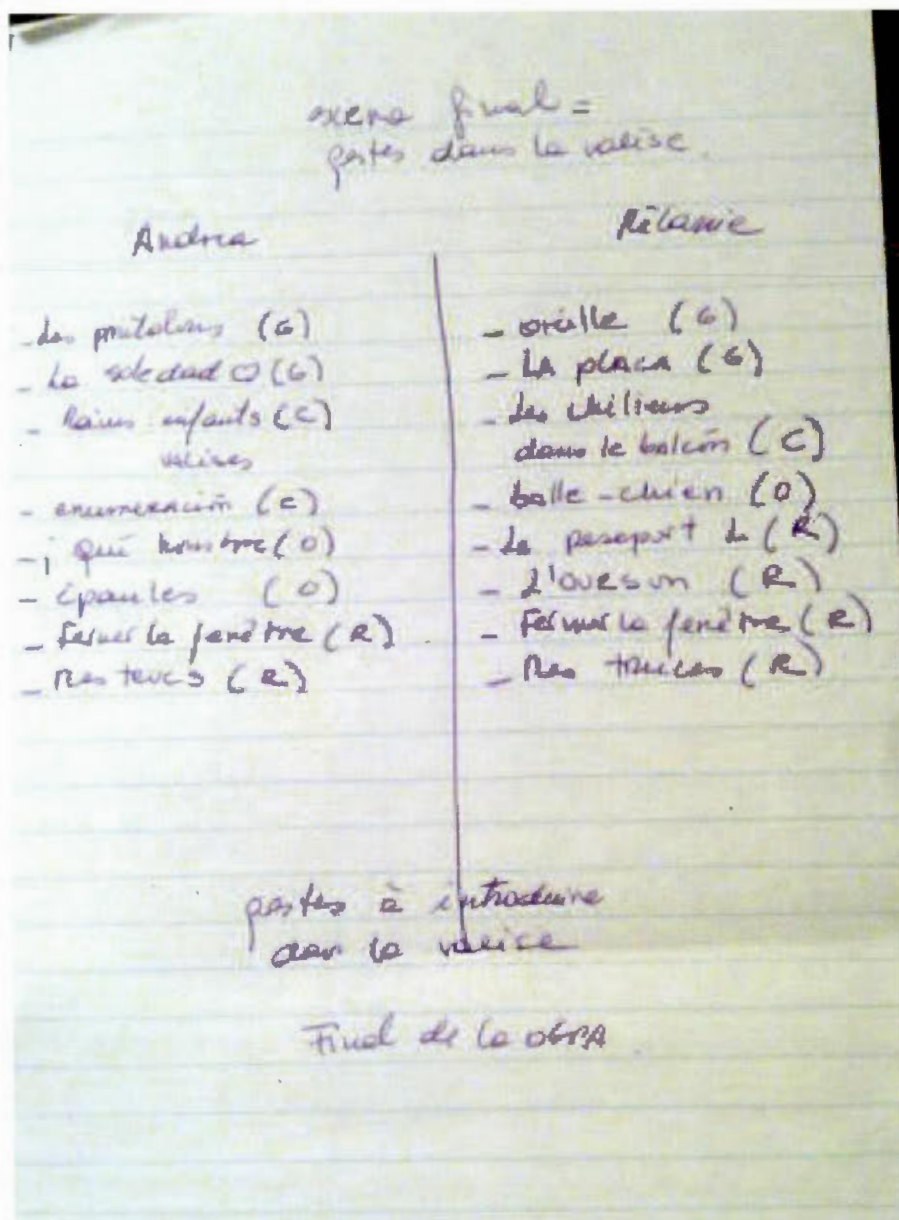 scena final =
gestes dans la valise.
Andrea
- Los pantalons (G)
- La soledad (G)
- Mains enfants (C)
valises
- enumeración (C)
- ¡ qué hombre (O)
- épaules (O)
- Fermer la fenêtre (R)
- Mes trucs (R)
Mélanie
- oreille (G)
- LA PLACA (G)
- Les chiliens
dans le balcón (C)
- balle-chien (O)
- Le pasaport (R)
- L'OURSON (R)
- Fermer la fenêtre (R)
- Mes trucs (R)
gestes à introduire
dans la valise
Final de la OBRA